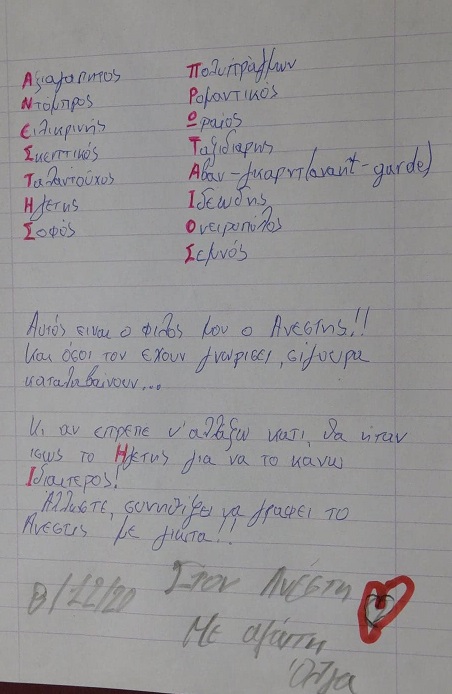 Αξιαγαπητος
Ντόμπρος
Ειλικρινής
Σκεπτικός
Ταλαντούχος
Ηγέτης
Σοφός
Πολυπράγμων
Ρομαντικός
Ωραίος
Ταξιδιάρης
Αβαν-γκαρντ(avant-garde)
Ιδεώδης
Ονειροπόλος
Σεμνός
Αυτός ειναι ο φιλος μου ο Ανεστης!!
Και όσοι τον εχουν γνωρισει, σίγουρα
καταλαβαίνουν...
Κι αν επρεπε ν'αλλάξω κατι, θα ηταν
ισως το Ηγετης για να το κανω
Ιδιαιτερος!
Αλλωστε, συνηθίζει να γραφει το
Ανεστης με γιωτα!!
Στον Ανέστη
8/12/20
Με αγάπη
Όλγα